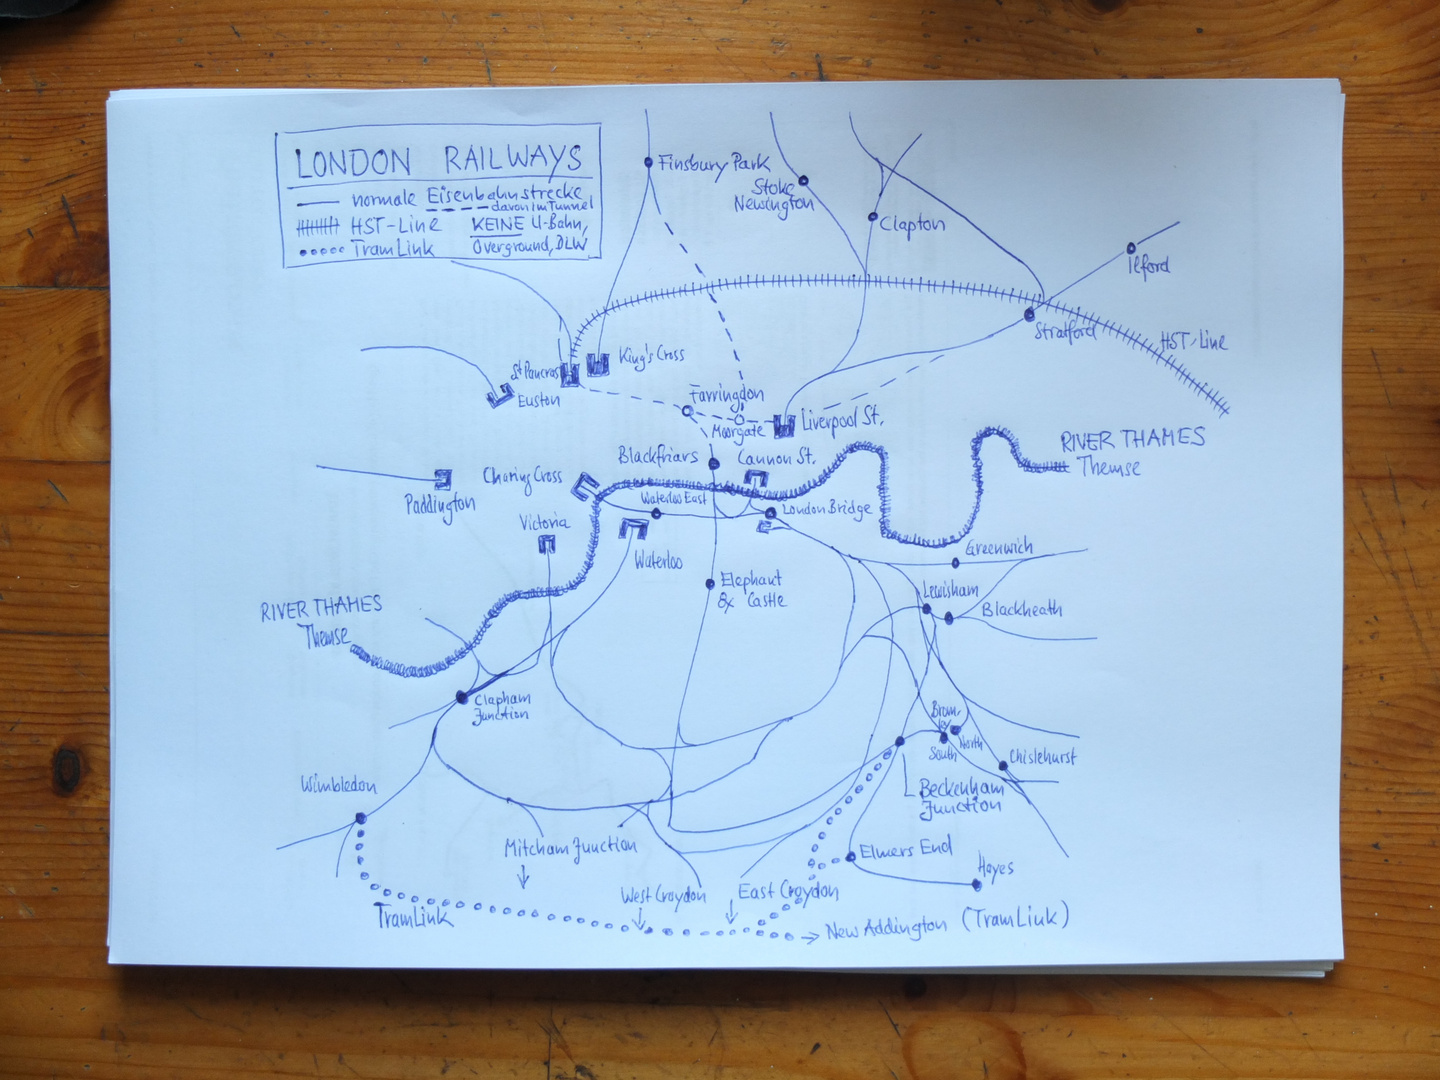 LONDON RAILWAYS
normale Eisenbahnstrecke
davon im Tunnel
HST-Line KEINE U-Bahn,
TramLink Overground, DLW
Finsbury Park
Stoke
Newington
Clapton
Ilford
Stratford
HST-Line
King's Cross
St Pancras
Euston
Farringdon
Moorgate
Liverpool St.
RIVER THAMES
Themse
Blackfriars
Cannon St.
Charing Cross
Paddington
Waterloo East
London Bridge
Victoria
Waterloo
Greenwich
Elephant
& Castle
Lewisham
Blackheath
RIVER THAMES
Themse
Clapham
Junction
Brom-
ley
North
South
Chislehurst
Wimbledon
Beckenham
Junction
Mitcham Junction
Elmers End
Hayes
West Croydon
East Croydon
TramLink
New Addington (TramLink)